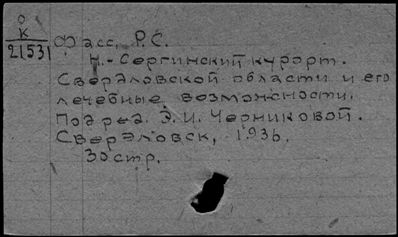 О
К
21531
Фасс, Р.С.
Н.-Сергинский курорт.
Свердловской области и его
лечебные возможности.
Под ред. Э.И. Черниковой.
Свердловск, 1936.
30 стр.